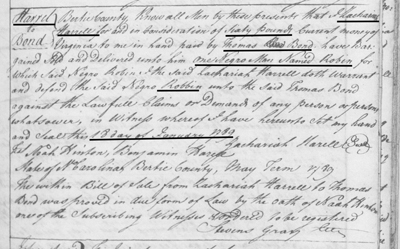 Harrell Bertie County, Know all Men by these presents that I Zachariah
to Harrell for and in Consideration of Sixty Pounds Current money of
Bond Virginia to me in hand paid by Thomas Bond have Bar
gained Sold and delivered unto him one Negro Man Named Robin for
which Said Negro Robin I the Said Zachariah Harrell doth Warrant
and defend the Said Negro Robbin unto the Said Thomas Bond
against the Lawfull Claims or Demands of any person or persons
whatsoever, in Witness whereof I have hereunto Set my hand
and Seal this day of January 1789
Noah Hinton, Benjamin Zachariah Harrell Seal
State of No Carolina Bertie County, May Term 1789
The within Bill of Sale from Zachariah Harrell to Thomas
Bond was proved in due form of Law by the oath of Noah Hinton
one of the Subscribing Witnesses & Ordered to be registered
Stevens Gray